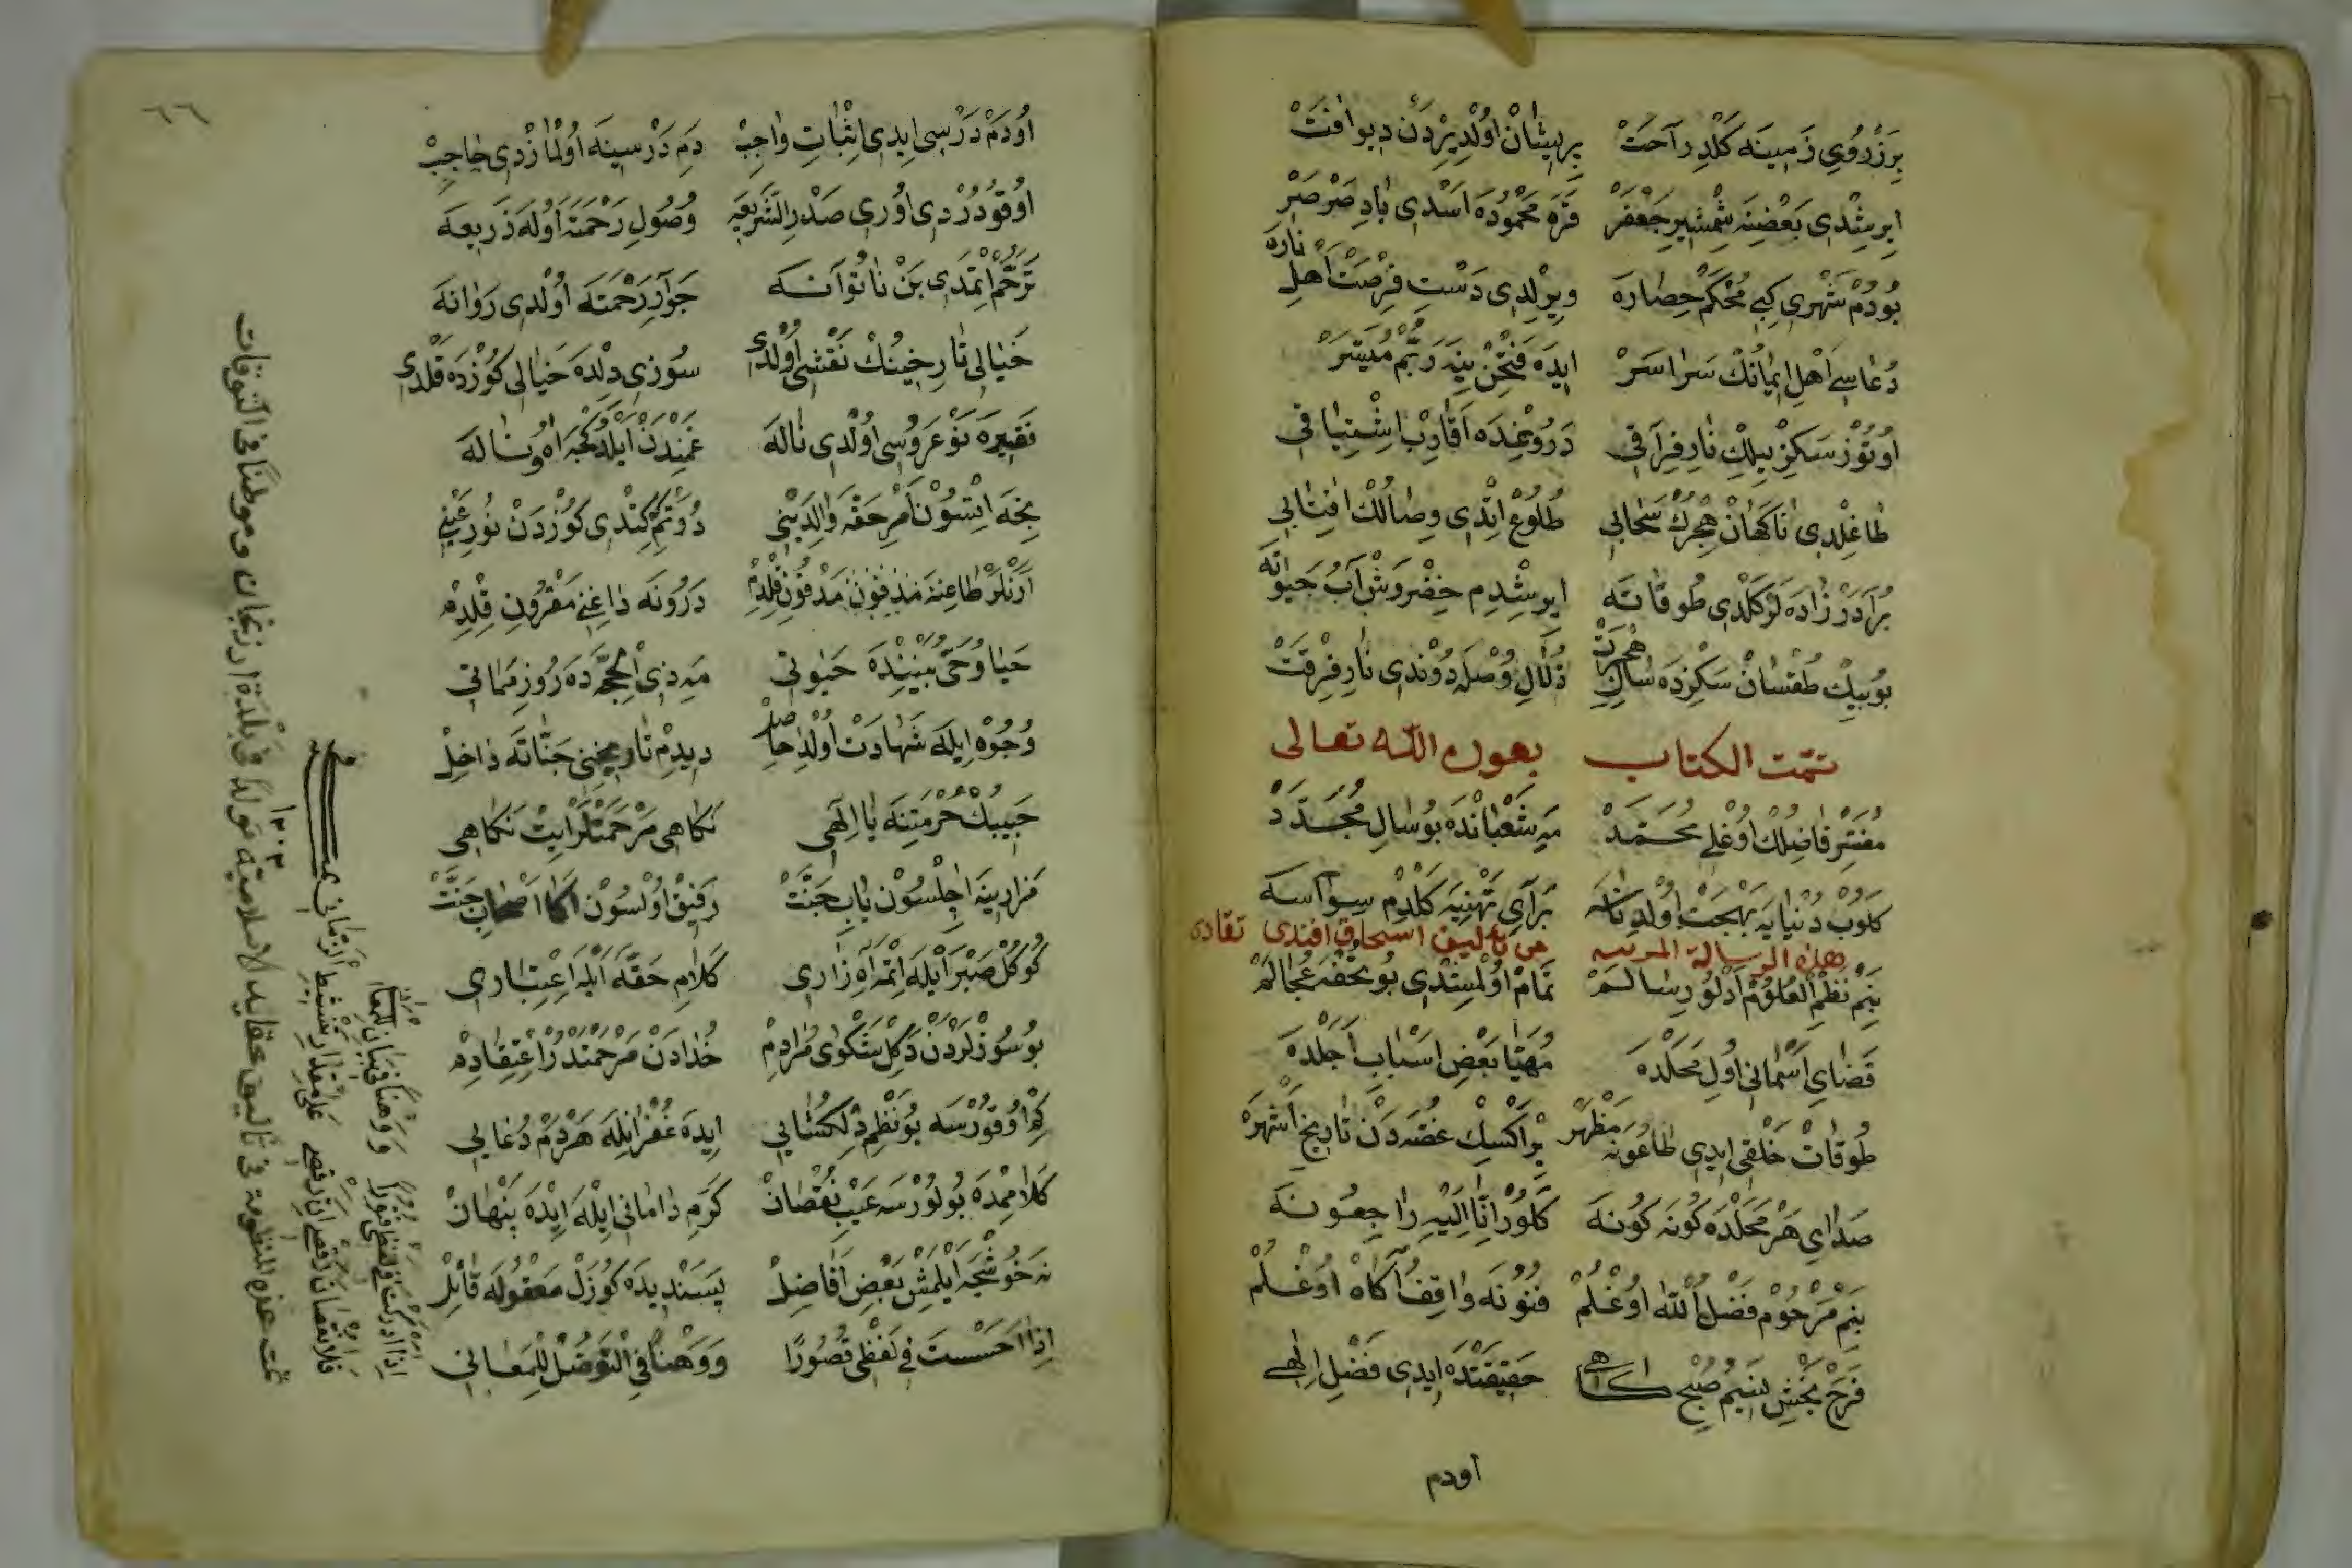 بِرَزْ رُوُیِ زَمِینَه كَلْدِ رَاحَتْ پِرِیشَانْ اوُلْدِ یِرْدَنْ دِیوِ افَتْ
ایرِشْدِی بَعْضِنَه شِمْشِیرِ جَعْفَرْ قَرَه مَحْمُودَه اَسْدِی بَادِ صَرْصَرْ
بُودُمْ شَهْرِی كِبِی مُحْكَمْ حِصَارَه وِیرِلْدِی دَسْتِ فِرْصَتْ اَهلِ نَارَه
دُعَاسِی اَهْلِ اِیمَانُكْ سَرَاسَرْ اِیدَه فَتْحِنْ ینَه رَبُّمْ مُیَسَّرْ
اوُتُوزْ سَكِزْ ییلِكْ نَارِ فِرَاقِی دَرُونُمْدَه اَقَارِبْ اشْتِیَاقِی
طَاغِلْدِی نَاكَهَانْ هِجْرُكْ سَحَابِی طُلُوعْ اِتْدِی وِصَالُكْ افِتَابِی
بُرَادَرْ زَادَه لَرْ كَلْدِی طُوقَاتَه ایرِشْدِم خِضْرْوَشْ آبُ حَیوَاتَه
بُوبِیكْ طُقْسَانْ سَكِزْدَه سَالِ هِجْرَتْ زُلَالِ وُصْلَه دُونْدِی نَارِ فِرْقَتْ
تمّت الكتاب بعون اللّه تعالى
مُفَسِّرْ فَاضِلُكْ اوُغْلِی مُحَمَّدْ مَهِ شَعْبَانْدَه بُو سَالِ مُجَدَّدْ
كَلُوبْ دُنْیَایَه بَهْجَتْ اوُلْدِ نَاسَه بَرَایِ تَهْنِیَه كَلْدِمْ سِوَاسَه
هذه الرسالة المرتبه من تاليف اسحاق افندى تقادى
بَنِمْ نَظْمِ الْعُلُومْ اَدْلُو رِسَالَمْ تَمَامْ اوُلْمِشْدِی بُو تُحْفَه عُجَالَمْ
قَضَایِ اَسْمَانِی اوُلْ مَحَلْدَه مُهَیَّا بَعْضِ اَسْبَابِ اَجَلْدَه
طُوقَاتْ خَلْقِی اِیدِی طَاعُونَه مَظْهَرْ بِرْ اَكْسِكْ غُصَّه دَنْ تَارِیخِ اَشْهَرْ
صَدَایِ هَرْ مَحَلْدَه كُونَه كُونَه كَلُورْ اِنَّا اِلَیْهِ رَاجِعُونَه
بَنِمْ مَرْحُومْ فَضْلُ اللّٰه اوُغْلُمْ فُنُونَه وَاقِفُ اكَاهْ اوُغْلُمْ
فَرَحْ بَخْشِ نسِیمِ صُبْحْ كَاهی حَقِیقَتْدَه اِیدِی فَضْلِ اِلٰهِی
اودم
٦٦
اوُدَمْ دَرْسِی اِیدِی اِثْبَاتِ وَاجِبْ دَمِ دَرْسِینَه اوُلْمَازْدِی حَاجِبْ
اوُقُودُرْدِی اوُرِی صَدْرِ الشَّرِیعَه وُصُولِ رَحْمَتَه اوُلَه ذَرِیعَه
تَرَحُّمْ اِتْمَدِی بَنْ نَاتُوَانَه جَوَارِ رَحْمَتَه اوُلْدِی رَوَانَه
خَیَالِی تَارِخِینُكْ نَقْشِی اوُلْدِی سُوزِی دِلْدَه خَیَالِی كُوزْدَه قَلْدِی
فَقِیرَه نَوْعَرُوسِی اوُلْدِی نَالَه غَمِنْدَنْ اَیْلَدُكْجَه اهُ و نَالَه
نِجَه اتِسُونْ اَمْرِ حَقَّه وَالِدَیْنِی دُوتَمْ كِتْدِی كُوزْدَنْ نُورِ عَیْنِی
اَرَنْلَرْ طَاعِنَه مَدْفُونِ قِلْدِمْ دَرُونَه دَاغِنِی مَقْرُونِ قِلْدِمْ
حَیَا وُ حَیّ بَیْنِنْدَه حَیَوتِی مَهِ ذِی الْحِجَّه دَه رُوزِ مَمَاتِی
وُجُوه اِیلَه شَهَادَتْ اوُلْدِ حَاصِلْ دِیدِمْ تَارِیخِنِی جَنَّاتَه دَاخِلْ
حَبِیبُكْ حُرْمَتِنَه یَا اِلٰهِی نَكَاهِی مَرْحَمَتْلَرْ اِیتْ نَكَاهِی
مَزَارِینَه اَچِلْسُونْ بَابِ جَنَّتْ رَفِیقْ اوُلْسُونْ اَكَا اَصْحَابِ جَنَّتْ
كُوكُلْ صَبْرْ اَیْلَه اِتْمَه آهِ زَارِی كَلَامِ حَقَّه اَیْلَه اِعْتِبَارِی
بُو سُوزْلَرْدَنْ دَكِلْ شَكْوَی مُرَادِمْ خُدَادَنْ مَرْحَمَتْدُرْ اِعْتِقَادِمْ
كِمْ اوُقُورْسَه بُو نَظْمِ دِلْكُشَایِی اِیدَه غُفْرَ ایلَه هَرْدَمْ دُعَایِی
كَلَامِمْدَه بُولُورْسَه عَیْبِ نُقْصَانْ كَرَمِ دَامَانِی اِیْلَه اِیْدَه پِنْهَانْ
نَه خُوشْجَه اَیلَمِشْ بَعْضِ اَفَاضِلْ پَسَنْدِیدَه كُوزَلْ مَعْقُولَه قَائِلْ
اِذَا اَحْسَسْتَ فِی لَفْظِی قُصُورًا وَ وَهْنًا فِی التَّوَصُّلْ لِلْمَعَانِی
اِذَا ادْرَكْتَ فِی لَفْظِی فُتُورًا وَ وَهْنًا فِی بَیَانٍ لِلْمَعَانِی
فَلَا نُقْصَانَ رَقْصِی اِنَّ رَقْصِی عَلَی مِقْدَارِ تَنْشِیطِ الزَّمَانِ
تمت هذه المنظومة فى تأليف عقايد الاسلاميّة تولدًا فى بلدة ارزنجان وموطنًا فى التوقات
١٣٠٣